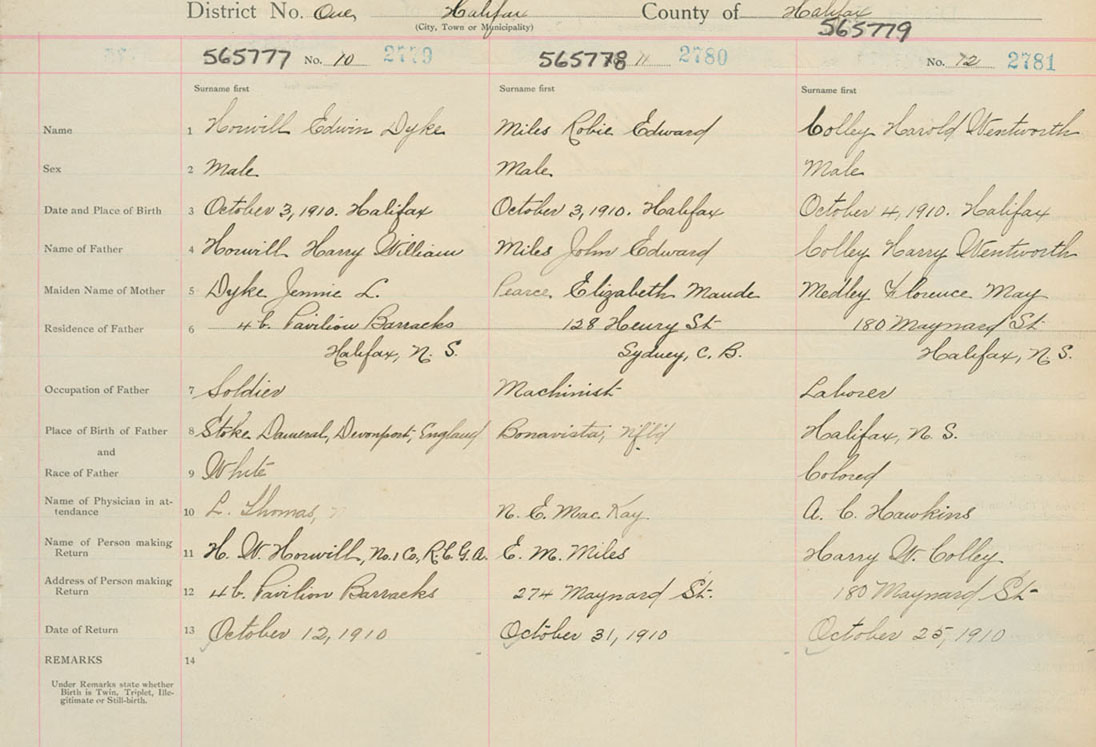 District No. One Halifax County of Halifax
(City, Town or Municipality)
565779
565777 No. 10 2779 565778 11 2780 No. 12 2781
Surname first Surname first Surname first
Name 1 Horwill Edwin Dyke Miles Robie Edward Colley Harold Wentworth
Sex 2 Male Male Male
Date and Place of Birth 3 October 3, 1910. Halifax October 3, 1910. Halifax October 4, 1910. Halifax
Name of Father 4 Horwill Harry William Miles John Edward Colley Harry Wentworth
Maiden Name of Mother 5 Dyke Jennie L. Pearce, Elizabeth Maude Medley Florence May
Residence of Father 6 4 b. Pavilion Barracks 128 Henry St 180 Maynard St
Halifax, N. S. Sydney, C. B. Halifax, N. S.
Occupation of Father 7 Soldier Machinist Laborer
Place of Birth of Father 8 Stoke Dameral, Devonport, England Bonavista, Nfld Halifax, N. S.
and
Race of Father 9 White Colored
Name of Physician in at-
tendance 10 L. Thomas, N. E. Mac. Kay A. C. Hawkins
Name of Person making
Return 11 H. W. Horwill, No. 1 Co, R. C. G. A. E. M. Miles Harry W. Colley
Address of Person making
Return 12 4 b. Pavilion Barracks 274 Maynard St. 180 Maynard St-
Date of Return 13 October 12, 1910 October 31, 1910 October 25, 1910
REMARKS 14
Under Remarks state whether
Birth is Twin, Triplet, Ille-
gitimate or Still-birth.